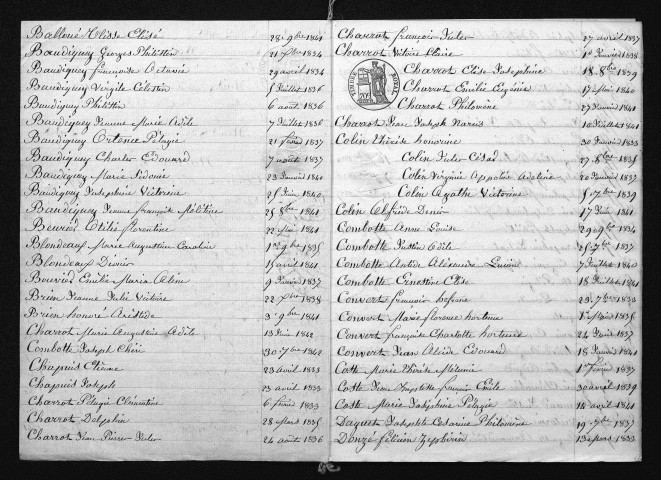 Balloué Elisse Elisé 28 9bre 1841
Baudiquey Georges Philibbin 21 1834
Baudiquey françoise Octavie 29 avril 1834
Baudiquey Virgile Célestin 5 Juillet 1836
Baudiquey Philibbin 6 aout 1836
Baudiquey Jeanne Marie Adèle 7 Juillet 1836
Baudiquey Ortence Pélagie 21 1837
Baudiquey Charles Edouard 7 aout 1837
Baudiquey Marie Sidonie 23 Janvier 1840
Baudiquey Joséphine Victorine 25 1840
Baudiquey Jeanne françoise 25 8bre 1841
Beurier Otilie florentine 22 Mai 1841
Blondeaux Marie Augustine Caroline 1er 9bre 1835
Blondeaux Désirer 15 avril 1841
Bouvier Emilie Maria Aline 9 1837
Brun Jeanne Julie Victoire 22 1838
Brun honoré Aristide 3 9bre 1841
Charrot Marie Augustine Adèle 13 Juin 1842
Combotte Joseph Chéri 30 1842
Chapuis Etienne 23 avril 1833
Chapuis Joseph 23 avril 1833
Charrot Pélagie Clémentine 6 1833
Charrot Delphin 28 Mars 1835
Charrot Jean Pierre Jules 24 août 1836
Charrot françois Jules 27 avril 1837
Charrot Victoire Claire 1er 1838
Charrot Elise Joséphine 18 8bre 1839
Charrot Emilie Eugénie 17 Mai 1840
Charrot Philomène 27 Janvier 1841
Charrot Jean Joseph Narcis 10 Juillet 1841
Colin Thérèse honorine 30 Janvier 1833
Colin Jules César 27 8bre 1835
Colin Virginie Appoline Adeline 20 Janvier 1837
Colin Agathe Victorine 5 1839
Colin Alfred Denis 17 Juin 1841
Combotte Anne Louise 29 9bre 1834
Combotte Justin Odile 25 7bre 1837
Combotte Antide Alexandre 7 Juillet 1840
Combotte Ernestine Elise 18 Juillet 1841
Convert françois 23 7bre 1833
Convert Marie florence hortense 1er 1835
Convert françoise Charlotte hortense 24 1837
Convert Jean Alcide Edouard 18 Janvier 1841
Coste Marie Thérèse Mélanie 17 1837
Coste Jean Baptiste françois Emile 30 avril 1839
Coste Marie Joséphine Pélagie 14 avril 1841
Daguet Josephte Césarine Philomène 19 7bre 1837
Donzé félicien Zéphirin 13 Mars 1833